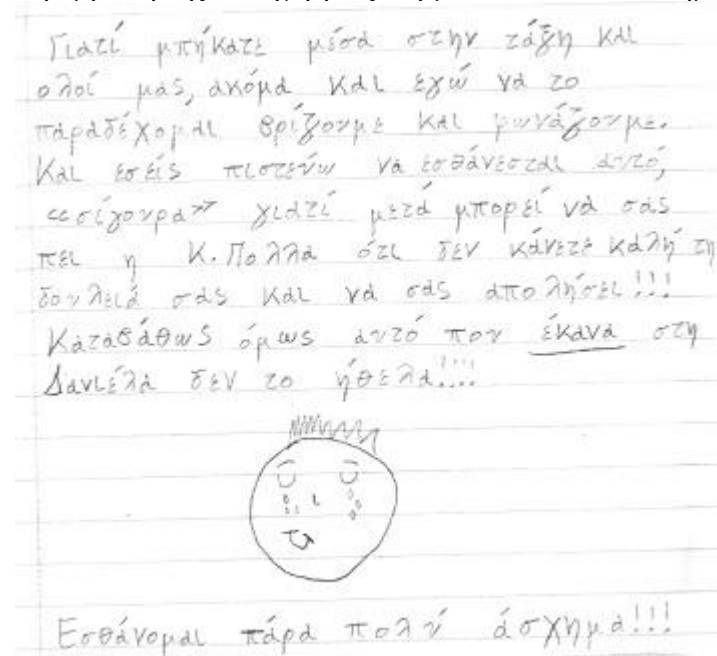 Γιατί μπήκατε μέσα στην τάξη και
ολοί μας, ακόμα και εγώ να το
παραδέχομαι βρίζουμε και φωνάζουμε.
Και εσείς πιστεύω να εσθάνεσται αυτό,
<<σίγουρα>> γιατί μετά μπορεί να σας
πει η Κ. Πολλά ότι δεν κάνετε καλή τη
δουλειά σας και να σας απολήσει!!!
Καταβάθως όμως αυτό που έκανα στη
Δανιέλα δεν το ήθελα!!!!
Εσθάνομαι πάρα πολύ άσχημα!!!